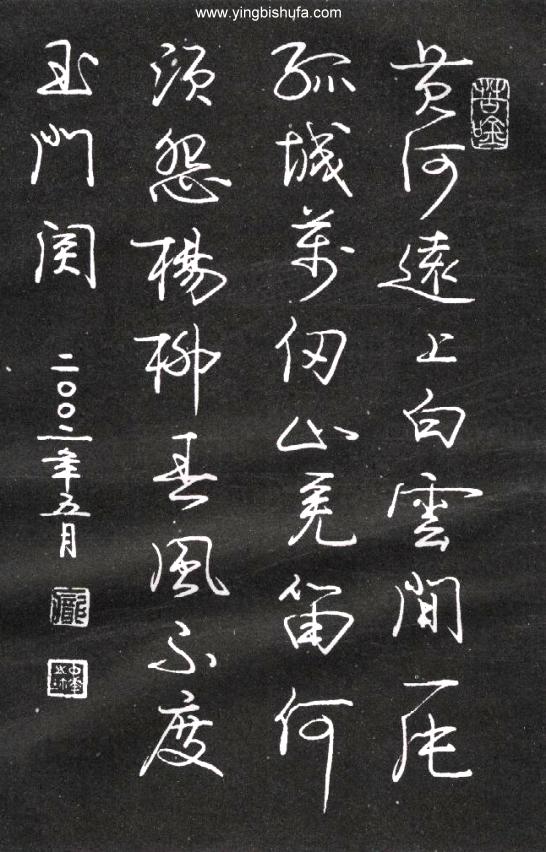 www.yingbishufa.com
黄河遠上白雲間一片
孤城萬仞山羌笛何
須怨楊柳春風不度
玉門関
二〇〇二年五月
龐